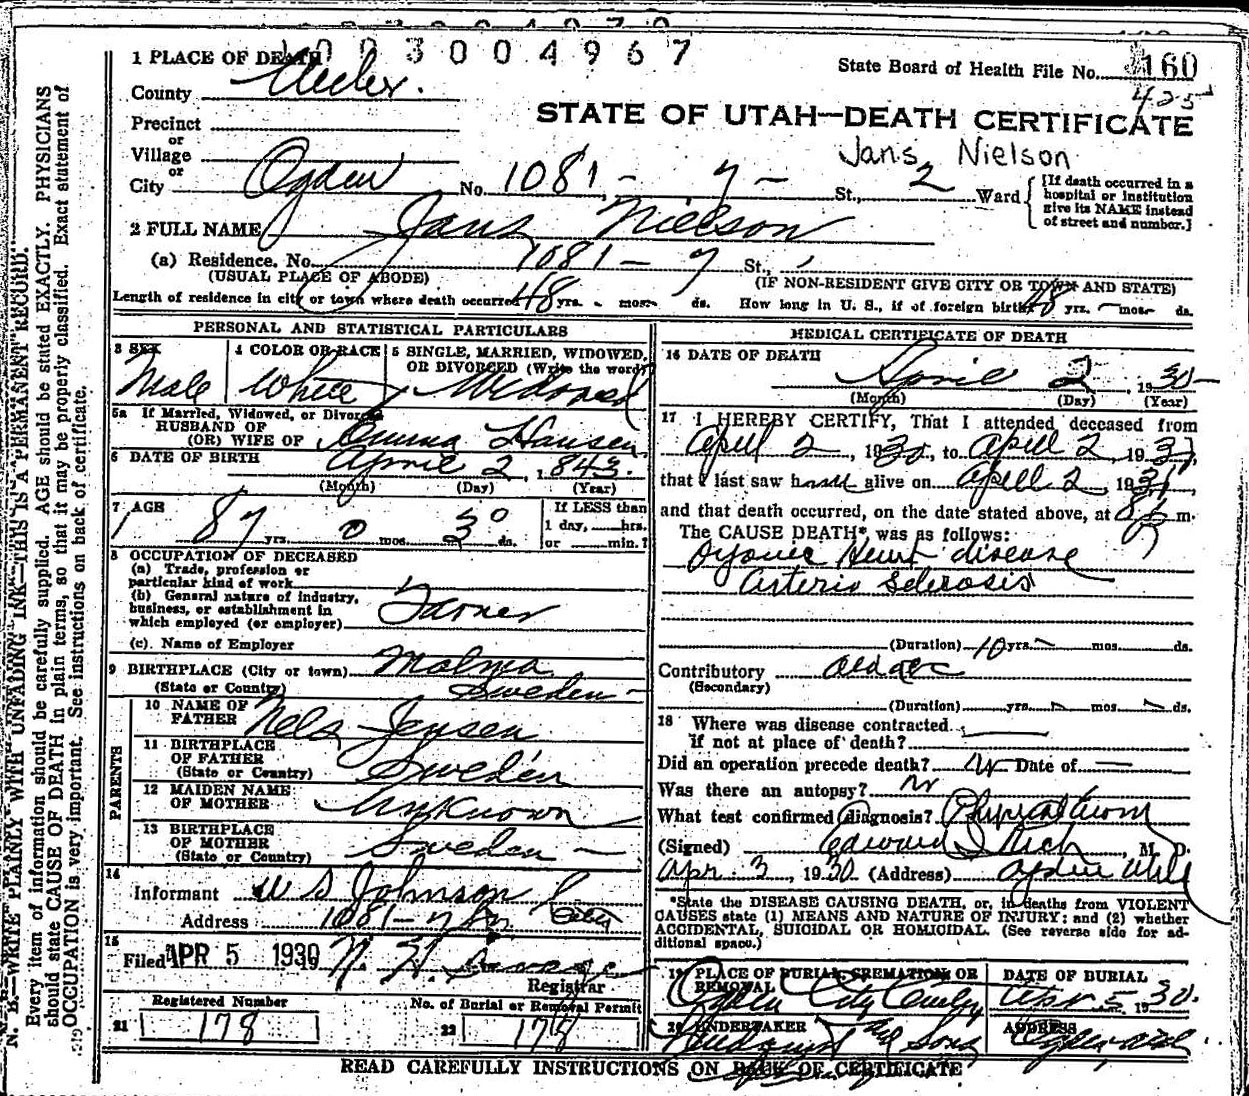 1003004967
1 PLACE OF DEATH
State Board of Health File No. 160
County Weber.
425
STATE OF UTAH—DEATH CERTIFICATE
Precinct
or
Village
Jans Nielson
or
City Ogden No. 1081 - 7 - St., 2 Ward
[If death occurred in a hospital or institution give its NAME instead of street and number.]
2 FULL NAME Jans Nielson
(a) Residence. No. 1081 - 7 St.,
(USUAL PLACE OF ABODE) (IF NON-RESIDENT GIVE CITY OR TOWN AND STATE)
Length of residence in city or town where death occurred 48 yrs. - mos. ds. How long in U. S., if of foreign birth? 48 yrs. — mos. ds.
PERSONAL AND STATISTICAL PARTICULARS
3 SEX
Male
4 COLOR OR RACE
White
5 SINGLE, MARRIED, WIDOWED,
OR DIVORCED (Write the word)
Widowed
5a If Married, Widowed, or Divorced
HUSBAND OF
(OR) WIFE OF Emma Hansen
6 DATE OF BIRTH April 2, 1843.
(Month) (Day) (Year)
7 AGE
87 yrs. 0 mos. ds.
If LESS than
1 day, hrs.
or min.?
8 OCCUPATION OF DECEASED
(a) Trade, profession or
particular kind of work
(b) General nature of industry,
business, or establishment in
which employed (or employer) Farmer
(c). Name of Employer
9 BIRTHPLACE (City or town) Malmo
(State or Country) Sweden -
PARENTS
10 NAME OF
FATHER Nels Jensen
11 BIRTHPLACE
OF FATHER
(State or Country) Sweden
12 MAIDEN NAME
OF MOTHER Unknown
13 BIRTHPLACE
OF MOTHER
(State or Country) Sweden —
14
Informant W S Johnson
Address 1081 - 7 City
15
Filed APR 5 1930
Registrar
Registered Number
21 178
No. of Burial or Removal Permit
22 178
MEDICAL CERTIFICATE OF DEATH
16 DATE OF DEATH
April 2, 1930-
(Month) (Day) (Year)
17 I HEREBY CERTIFY, That I attended deceased from
April 2, 1930, to April 2, 1930,
that I last saw h alive on April 2, 193
and that death occurred, on the date stated above, at 8 P m.
The CAUSE DEATH* was as follows:
Organic Heart disease
Arterio Sclerosis
(Duration) 10 yrs. - mos. ds.
Contributory Old age
(Secondary)
(Duration) yrs. mos. ds.
18 Where was disease contracted
if not at place of death?
Did an operation precede death? No Date of —
Was there an autopsy? No
What test confirmed diagnosis?
(Signed) Edward I Rich, M. D.
Apr. 3, 1930. (Address) Ogden Utah
*State the DISEASE CAUSING DEATH, or, in deaths from VIOLENT
CAUSES state (1) MEANS AND NATURE OF INJURY; and (2) whether
ACCIDENTAL, SUICIDAL OR HOMICIDAL. (See reverse side for ad-
ditional space.)
19 PLACE OF BURIAL, CREMATION OR
REMOVAL
Ogden City
DATE OF BURIAL
Apr 5, 1930.
20 UNDERTAKER
Lindquist and Sons
ADDRESS
Ogden Utah
READ CAREFULLY INSTRUCTIONS ON BACK OF CERTIFICATE
N. B.—WRITE PLAINLY WITH UNFADING INK—THIS IS A PERMANENT RECORD.
Every item of information should be carefully supplied. AGE should be stated EXACTLY. PHYSICIANS
should state CAUSE OF DEATH in plain terms, so that it may be properly classified. Exact statement of
OCCUPATION is very important. See instructions on back of certificate.